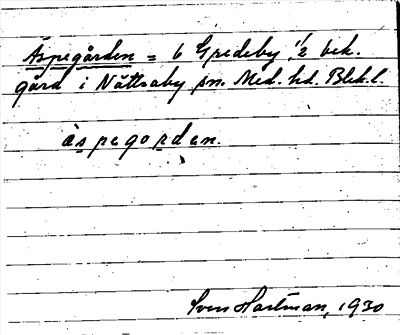 Äspegården = 6 Gredeby, 1/2 bek.
gård i Nättraby sn. Med. hd. Blek.l.
äspegordən.
Sven Hartman, 1930